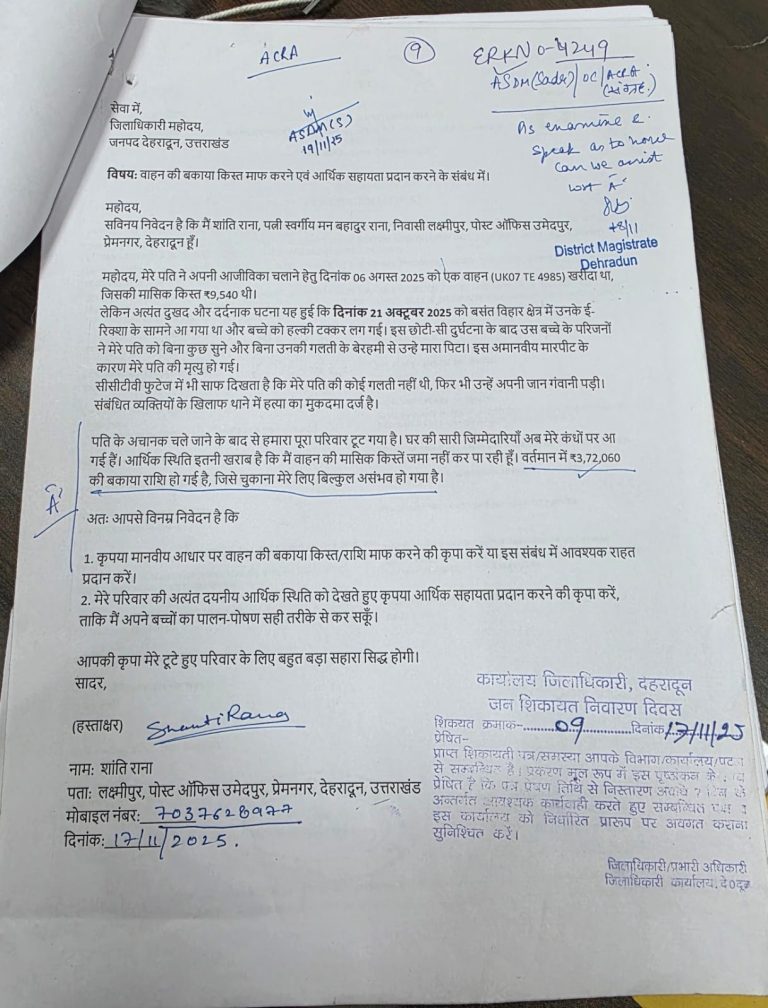 ACRA
9
ERK No-4249
ASDM(Sadar)/OC/ACRA
(संग्रह.)
सेवा में,
जिलाधिकारी महोदय,
जनपद देहरादून, उत्तराखंड
ASDM(S)
19/11/25
As examine &
speak as to how
can we assist
wrt 'A'
18/11
District Magistrate
Dehradun
विषय: वाहन की बकाया किस्त माफ करने एवं आर्थिक सहायता प्रदान करने के संबंध में।
महोदय,
सविनय निवेदन है कि मैं शांति राना, पत्नी स्वर्गीय मन बहादुर राना, निवासी लक्ष्मीपुर, पोस्ट ऑफिस उमेदपुर,
प्रेमनगर, देहरादून हूँ।
महोदय, मेरे पति ने अपनी आजीविका चलाने हेतु दिनांक 06 अगस्त 2025 को एक वाहन (UK07 TE 4985) खरीदा था,
जिसकी मासिक किस्त ₹9,540 थी।
लेकिन अत्यंत दुखद और दर्दनाक घटना यह हुई कि दिनांक 21 अक्टूबर 2025 को बसंत विहार क्षेत्र में उनके ई-
रिक्शा के सामने आ गया था और बच्चे को हल्की टक्कर लग गई। इस छोटी-सी दुर्घटना के बाद उस बच्चे के परिजनों
ने मेरे पति को बिना कुछ सुने और बिना उनकी गलती के बेरहमी से उन्हे मारा पिटा। इस अमानवीय मारपीट के
कारण मेरे पति की मृत्यु हो गई।
सीसीटीवी फुटेज में भी साफ दिखता है कि मेरे पति की कोई गलती नहीं थी, फिर भी उन्हें अपनी जान गंवानी पड़ी।
संबंधित व्यक्तियों के खिलाफ थाने में हत्या का मुकदमा दर्ज है।
पति के अचानक चले जाने के बाद से हमारा पूरा परिवार टूट गया है। घर की सारी जिम्मेदारियाँ अब मेरे कंधों पर आ
गई हैं। आर्थिक स्थिति इतनी खराब है कि मैं वाहन की मासिक किस्तें जमा नहीं कर पा रही हूँ। वर्तमान में ₹3,72,060
की बकाया राशि हो गई है, जिसे चुकाना मेरे लिए बिल्कुल असंभव हो गया है।
'A'
अतः आपसे विनम्र निवेदन है कि
1. कृपया मानवीय आधार पर वाहन की बकाया किस्त/राशि माफ करने की कृपा करें या इस संबंध में आवश्यक राहत
प्रदान करें।
2. मेरे परिवार की अत्यंत दयनीय आर्थिक स्थिति को देखते हुए कृपया आर्थिक सहायता प्रदान करने की कृपा करें,
ताकि मैं अपने बच्चों का पालन-पोषण सही तरीके से कर सकूँ।
आपकी कृपा मेरे टूटे हुए परिवार के लिए बहुत बड़ा सहारा सिद्ध होगी।
सादर,
(हस्ताक्षर) Shanti Rana
नाम: शांति राना
पता: लक्ष्मीपुर, पोस्ट ऑफिस उमेदपुर, प्रेमनगर, देहरादून, उत्तराखंड
मोबाइल नंबर: 7037628977
दिनांक: 17/11/2025.
कार्यालय जिलाधिकारी, देहरादून
जन शिकायत निवारण दिवस
शिकयत क्रमांक-.........09...............दिनांक 17/11/25
प्रेषित-
प्राप्त शिकायती पत्र/समस्या आपके विभाग/कार्यालय/पटल
से सम्बन्धित है। प्रकरण मूल रूप में इस पृष्ठांकन के
प्रेषित है कि पत्र प्रेषण तिथि से निस्तारण अवधि 7 दिन के
अन्तर्गत आवश्यक कार्यवाही करते हुए सम्बन्धित
इस कार्यालय को निर्धारित प्रारूप पर अवगत कराना
सुनिश्चित करें।
जिलाधिकारी/प्रभारी अधिकारी
जिलाधिकारी कार्यालय, दे0दून